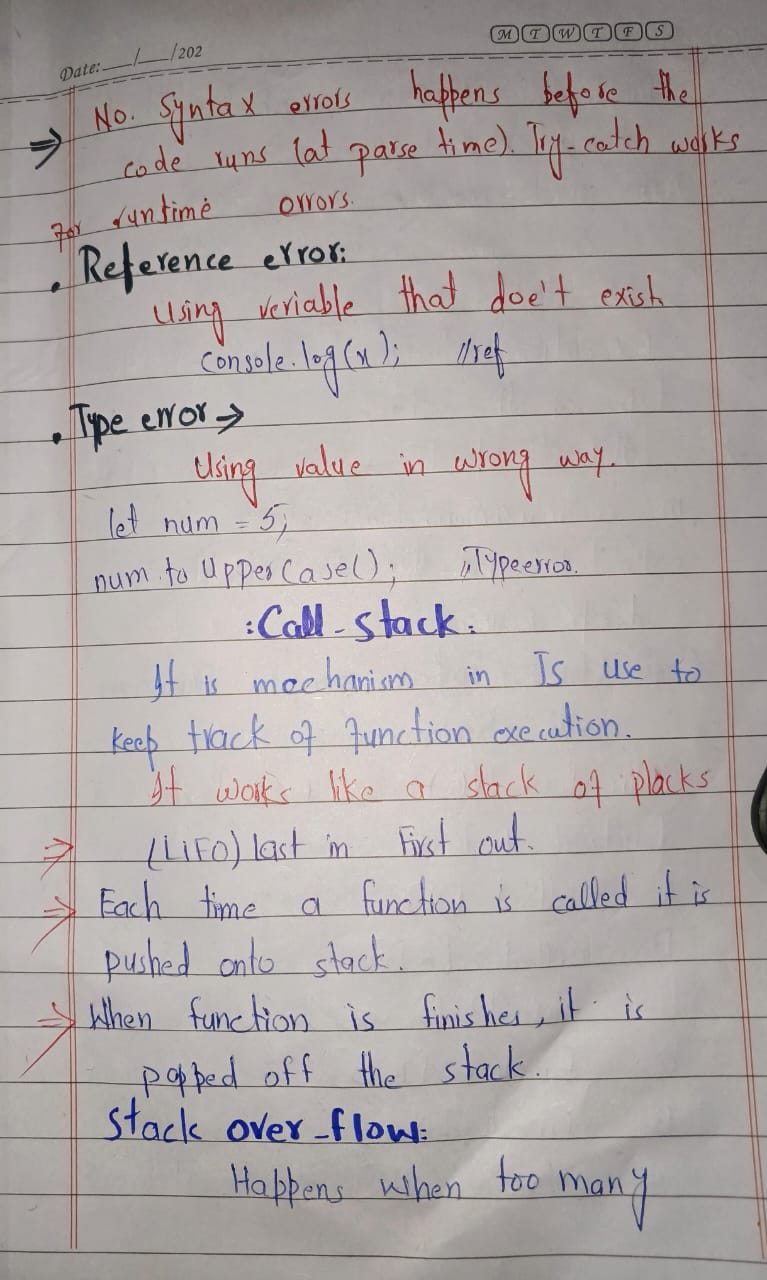 M T W T F S
Date:__/__/202
No. Syntax errors happens before the
⇒ code runs (at parse time). Try-catch works
for runtime errors.
• Reference error:
Using veriable that doe't exist
console.log(x); //ref
• Type error →
Using value in wrong way.
let num = 5;
num.to UpperCase(); //Typeerror.
:Call-stack:
It is mechanism in JS use to
keep track of function execution.
It works like a stack of placks
⇒ (LIFO) last in First out.
⇒ Each time a function is called it is
pushed onto stack.
⇒ When function is finishes, it is
popped off the stack.
Stack over-flow:
Happens when too many